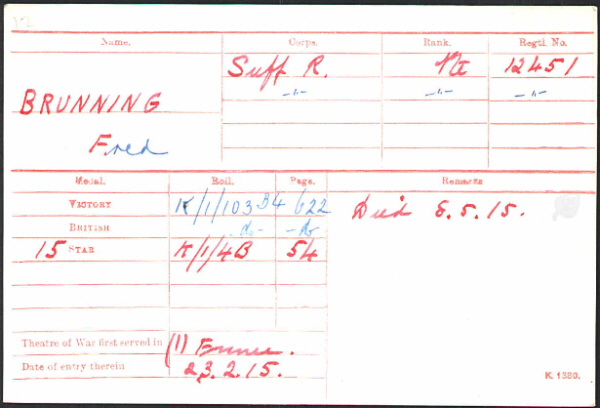 Name. Corps. Rank. Regtl. No.
Suff R. Pte 12451
BRUNNING -"- -"- -"-
Fred
Medal. Roll. Page. Remarks
VICTORY K/1/103 B4 622 Died 8.5.15.
BRITISH -do- -do-
15 STAR K/1/4B 54
Theatre of War first served in (1) France.
Date of entry therein 23.2.15.
K. 1380.